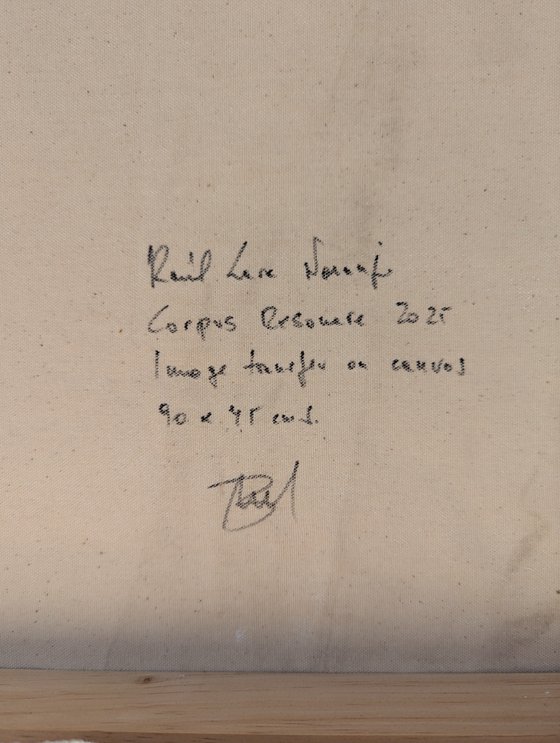 Raúl Lara Naranjo
Corpus Resonare 2025
Image transfer on canvas
90 x 45 cms.